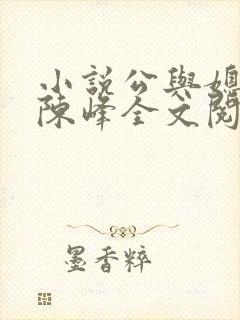 小説公與媳
陳峰全文閱
墨香粹